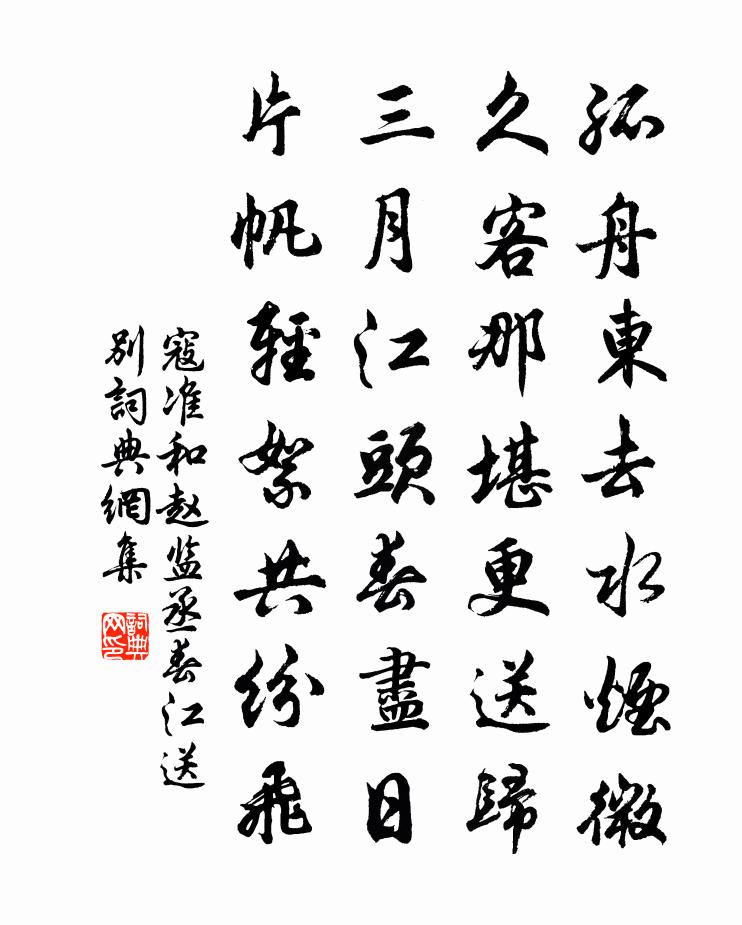 孤舟東去水煙微
久客那堪更送歸
三月江頭春盡日
片帆輕絮共紛飛
寇准和赵监丞春江送
别詞典網集
詞典网印